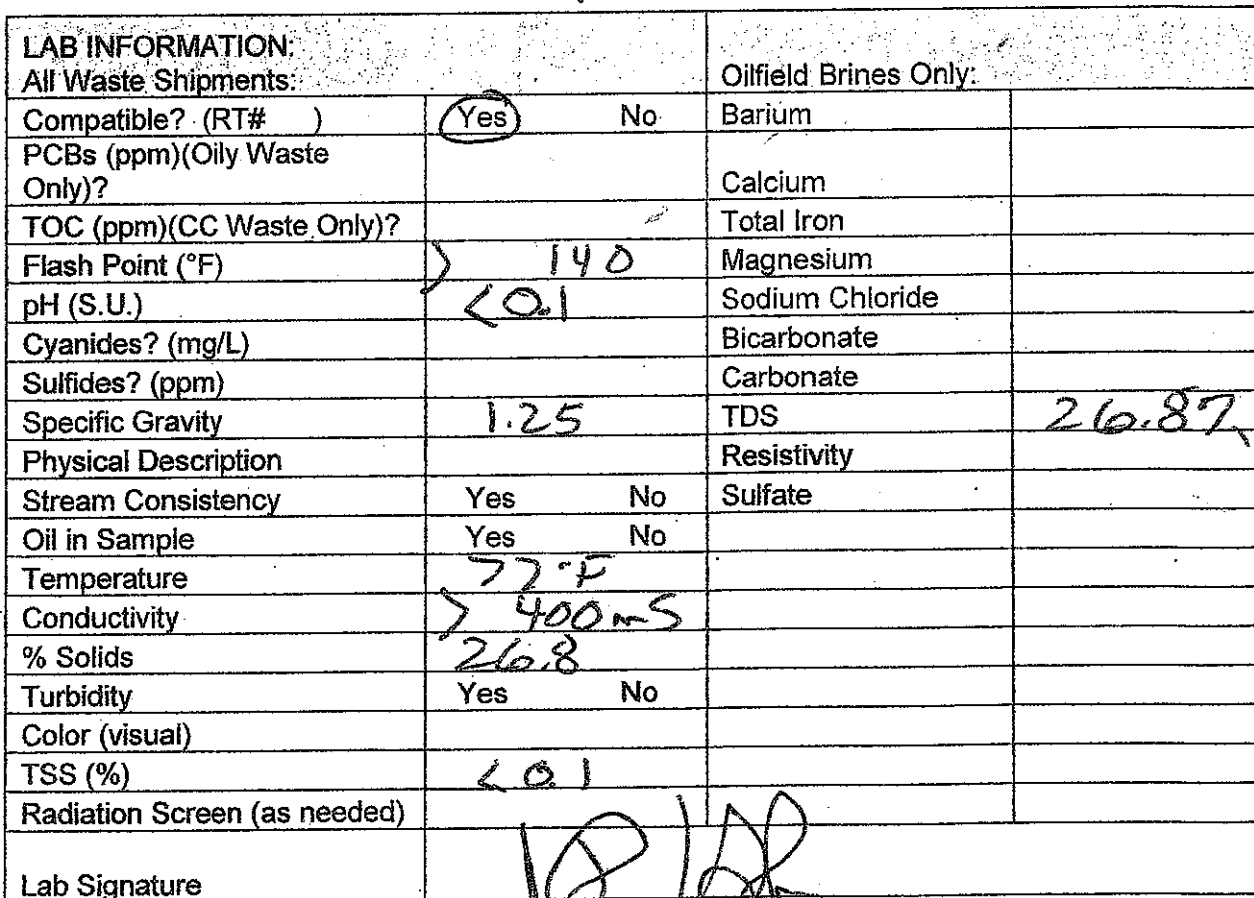 LAB INFORMATION:
All Waste Shipments: Oilfield Brines Only:
Compatible? (RT# ) Yes No Barium
PCBs (ppm)(Oily Waste
Only)? Calcium
TOC (ppm)(CC Waste Only)? Total Iron
Flash Point (°F) > 140 Magnesium
pH (S.U.) <0.1 Sodium Chloride
Cyanides? (mg/L) Bicarbonate
Sulfides? (ppm) Carbonate
Specific Gravity 1.25 TDS
Physical Description Resistivity
Stream Consistency Yes No Sulfate
Oil in Sample Yes No
Temperature 72°F
Conductivity > 400 mS
% Solids 26.8
Turbidity Yes No
Color (visual)
TSS (%) <0.1
Radiation Screen (as needed)
Lab Signature